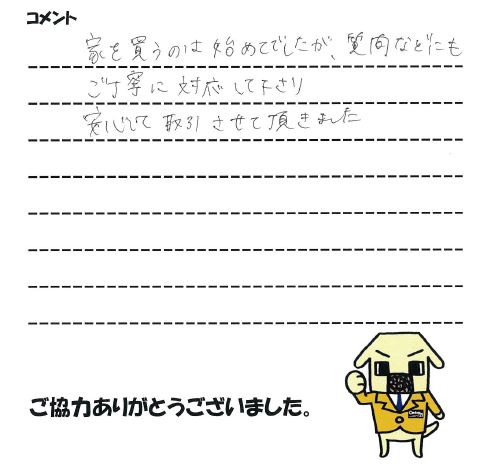 コメント
家を買うのは始めてでしたが、質問などにも
ご丁寧に対応して下さり
安心して取引させて頂きました
ご協力ありがとうございました。